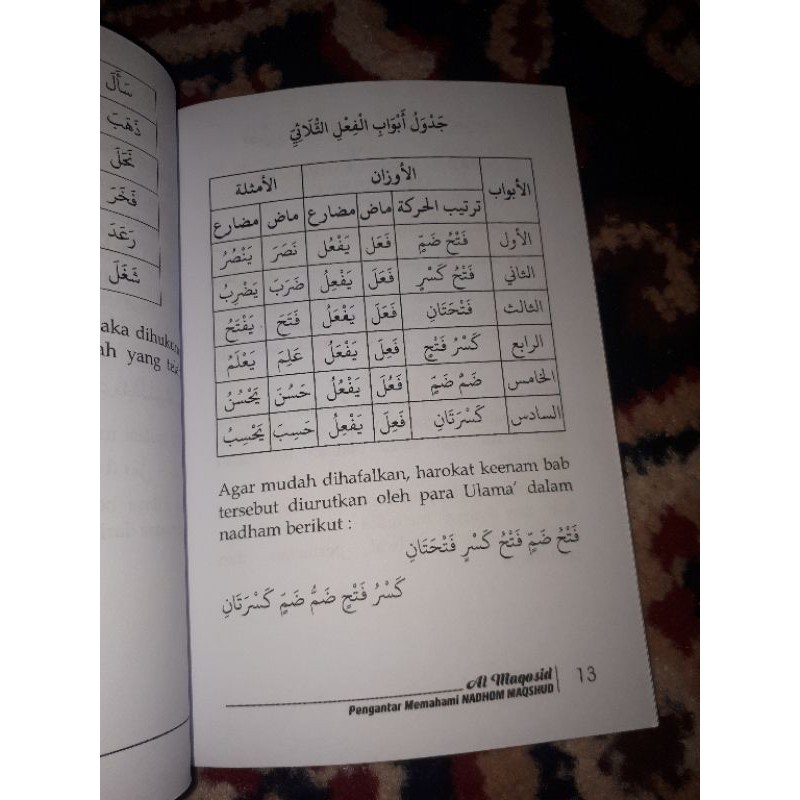 سَأَلَ
ذَهَبَ
نَحَلَ
فَخَرَ
رَعَدَ
شَغَلَ
aka dihuku
ah yang te
جَدْوَلُ أَبْوَابِ الْفِعْلِ الثُّلَاثِيِّ
الأبواب الأوزان الأمثلة
ترتيب الحركة ماض مضارع ماض مضارع
الأول فَتْحُ ضَمٍّ فَعَلَ يَفْعُلُ نَصَرَ يَنْصُرُ
الثاني فَتْحُ كَسْرٍ فَعَلَ يَفْعِلُ ضَرَبَ يَضْرِبُ
الثالث فَتْحَتَانِ فَعَلَ يَفْعَلُ فَتَحَ يَفْتَحُ
الرابع كَسْرُ فَتْحٍ فَعِلَ يَفْعَلُ عَلِمَ يَعْلَمُ
الخامس ضَمُّ ضَمٍّ فَعُلَ يَفْعُلُ حَسُنَ يَحْسُنُ
السادس كَسْرَتَانِ فَعِلَ يَفْعِلُ حَسِبَ يَحْسِبُ
Agar mudah dihafalkan, harokat keenam bab
tersebut diurutkan oleh para Ulama' dalam
nadham berikut :
فَتْحُ ضَمٍّ فَتْحُ كَسْرٍ فَتْحَتَانِ
كَسْرُ فَتْحٍ ضَمُّ ضَمٍّ كَسْرَتَانِ
Al Maqosid
Pengantar Memahami NADHOM MAQSHUD
13